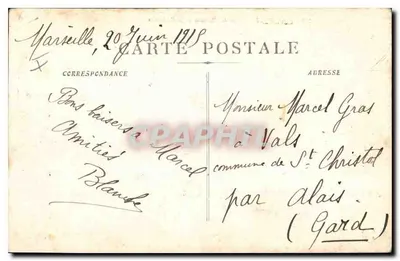 Marseille, 20 Juin 1915
CARTE POSTALE
CORRESPONDANCE
ADRESSE
Bons baisers à Marcel
Amitiés
Blanche
Monsieur Marcel Gras
à Vals
commune de St. Christol
par Alais.
(Gard)
CPAPHIL